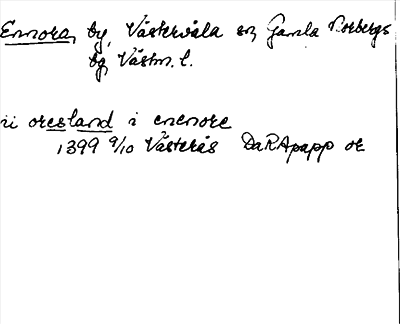 Ennora, by, Västervåla sn, Gamla Norbergs
bg, Västm. l.
ii oresland i enenore
1399 9/10 Västerås DaRApapp or